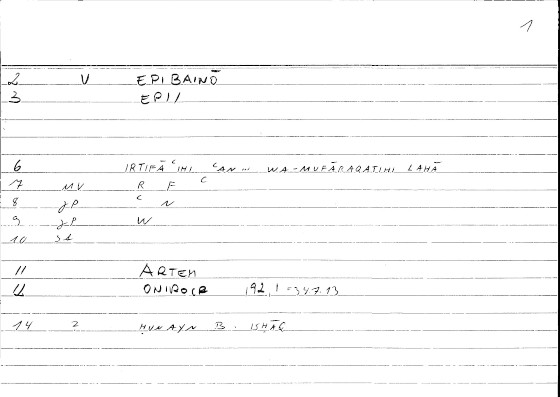 1
2 V EPIBAINŌ
3 EPI/
6 IRTIFĀʿIHI ʿAN... WA-MUFĀRAQATIHI LAHĀ
7 MV R F ʿ
8 gP ʿ N
9 gP W
10 st
11 ARTEM
ONIROCR 192,1=347.13
14 2 ḤUNAYN B. ISḤĀQ